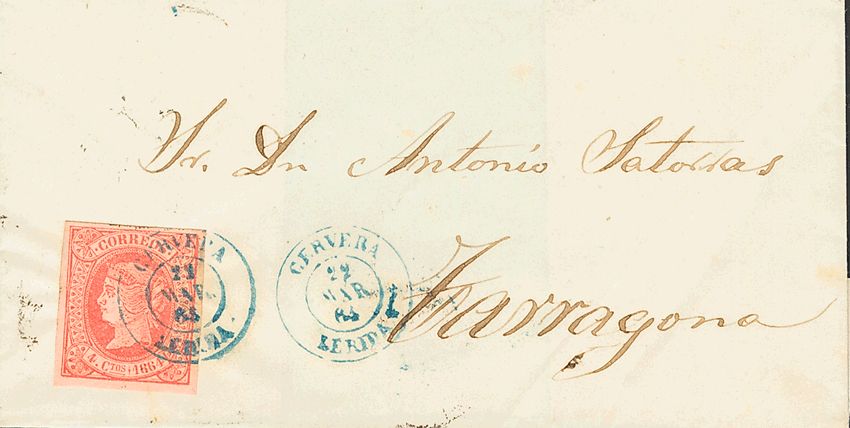 Sr. Dn Antonio Satorras
Tarragona
CORREOS
4 Ctos 1864
CERVERA
MAR.
64
LERIDA.
CERVERA
22
MAR.
64
LERIDA.